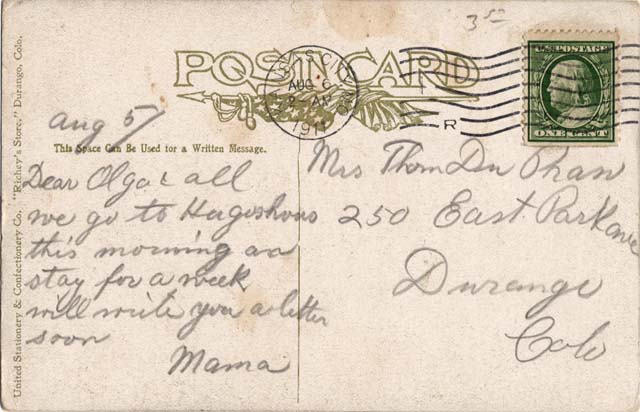 3 50
POST CARD
AUG 6
1911
R
U.S. POSTAGE
ONE CENT
Aug 5
This Space Can Be Used for a Written Message.
Dear Olga & all
we go to
this morning
stay for a week
will write you a letter
soon
Mama
Mrs Thom Du
250 East Park ave
Durango
Colo
United Stationery & Confectionery Co. "Richey's Store," Durango, Colo.